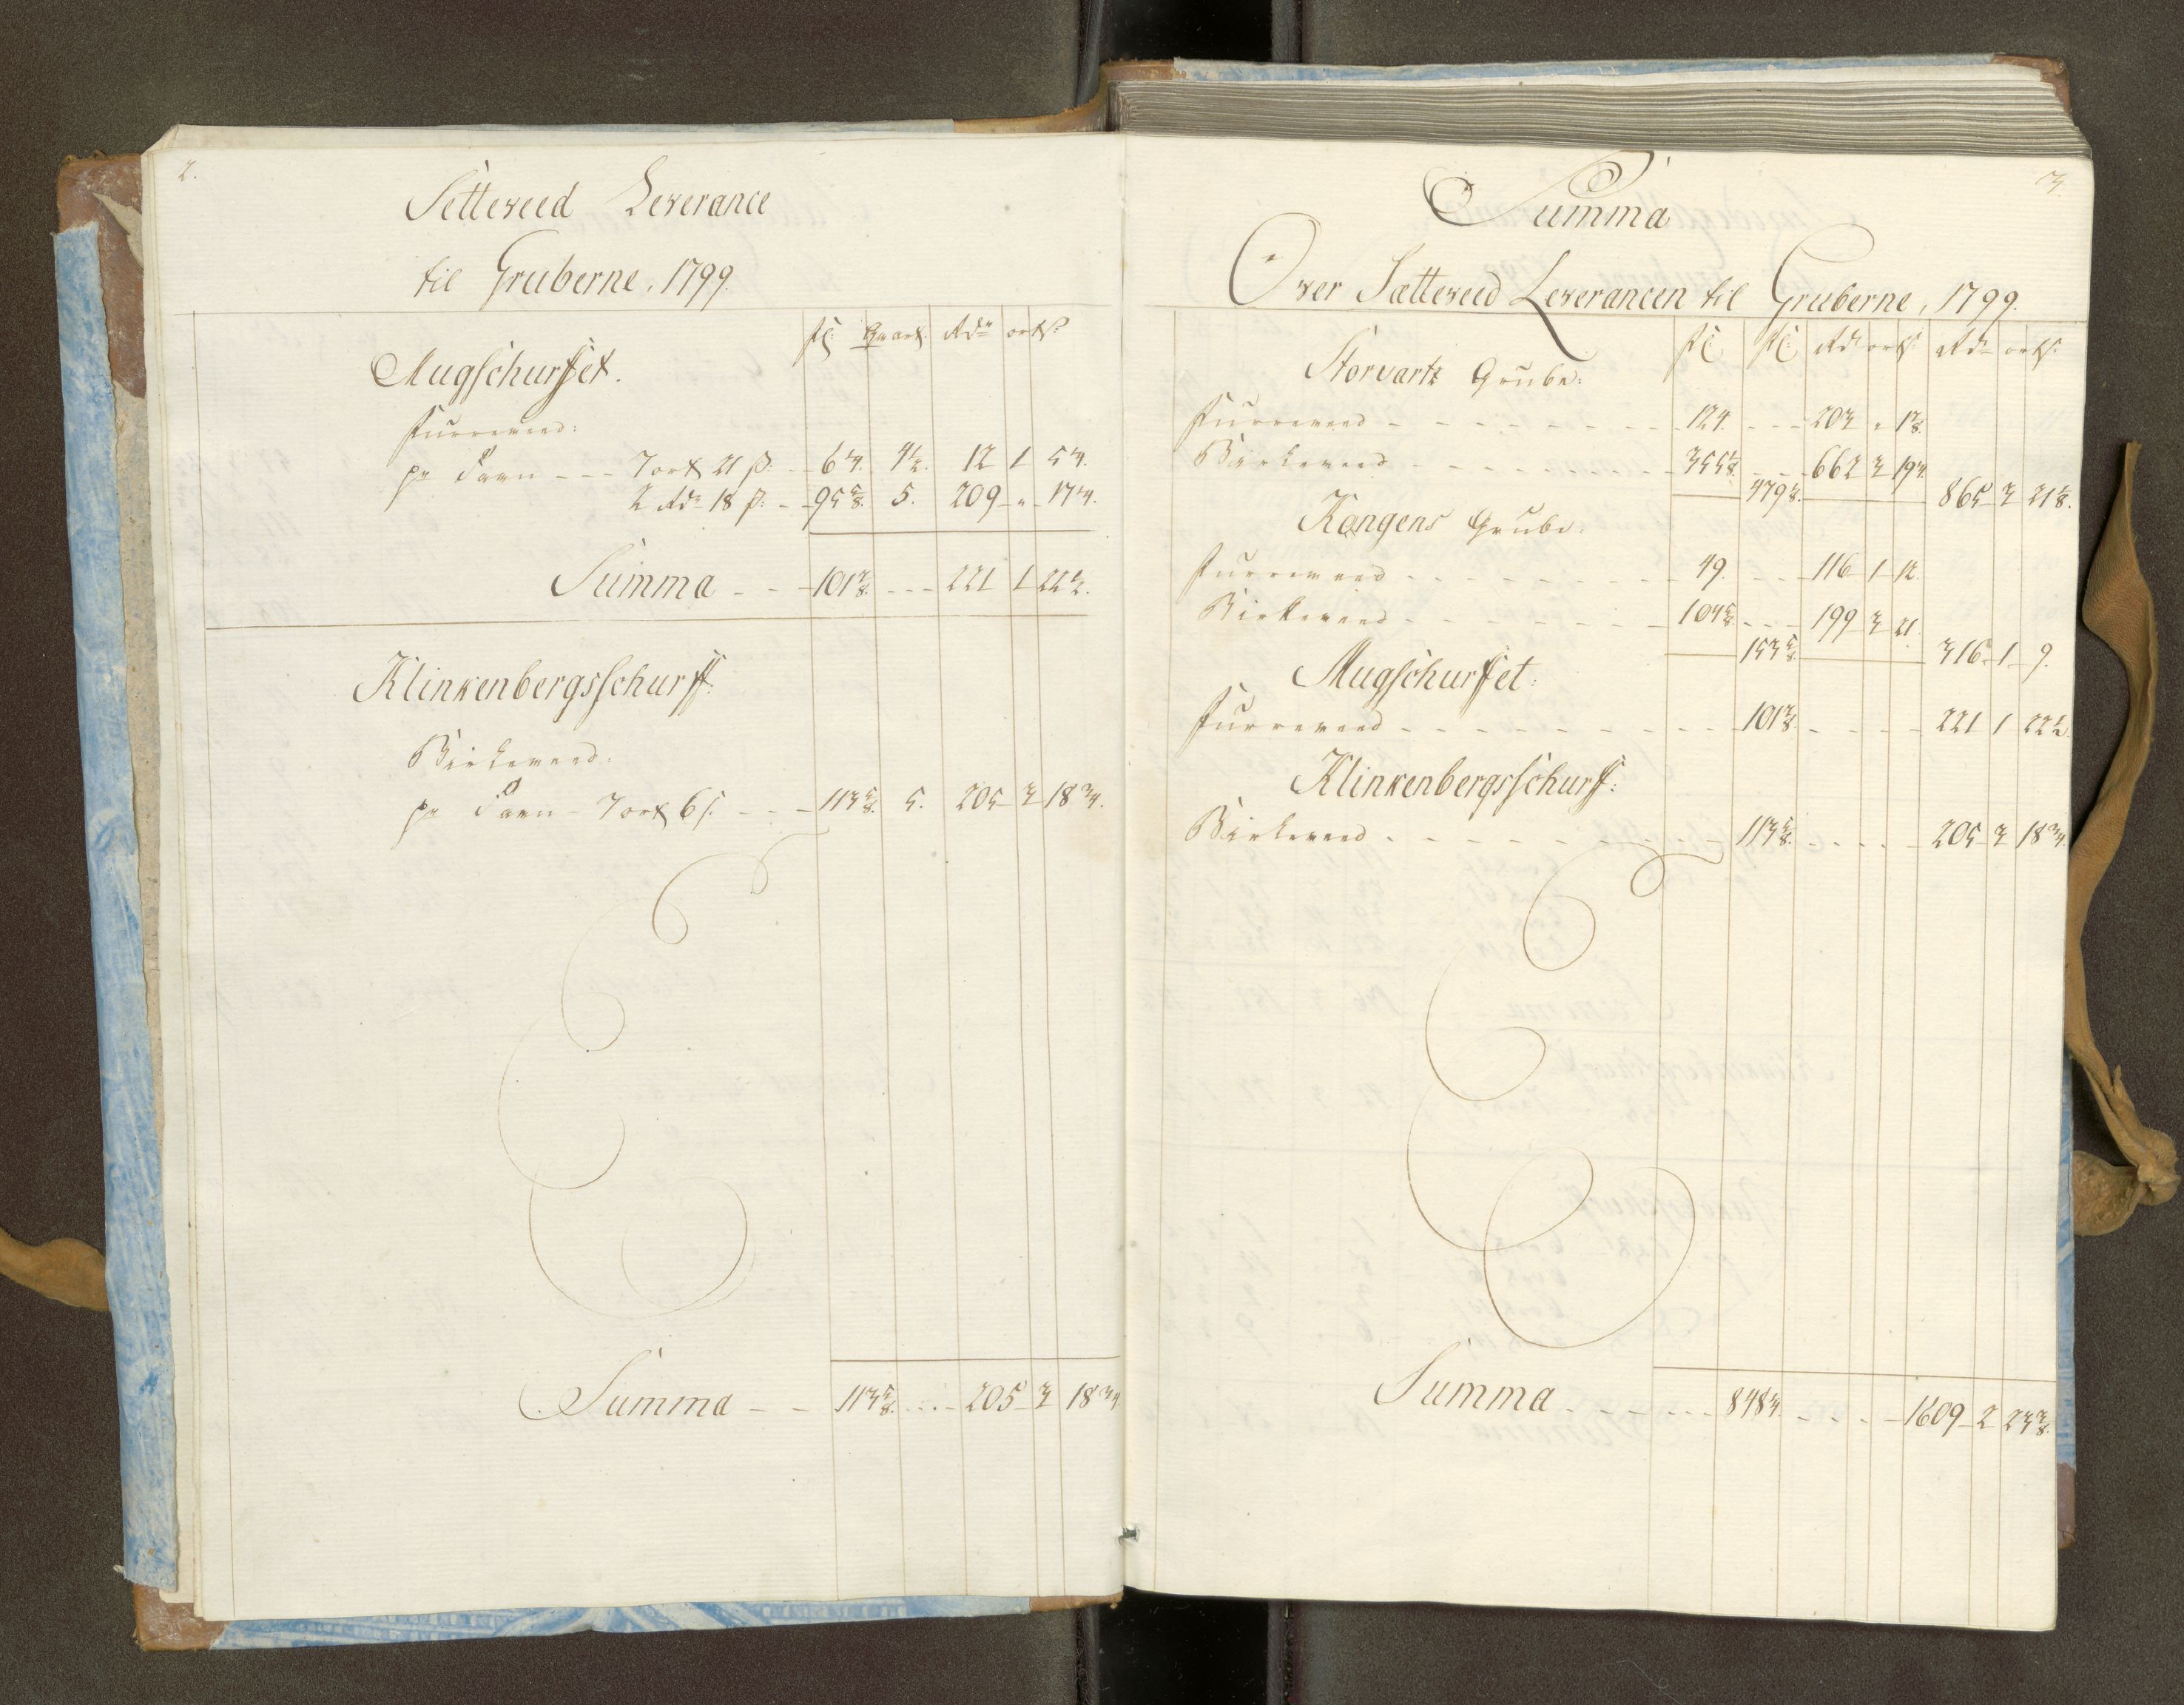 2.
Setteveed Leverance
til Gruberne. 1799.
Quart. Rdr ort s.
Mugschurffet.
Furreveed:
pr Favn - - - 7 ort 21 s. - - 6 1/4. 4 1/2. 12 1 5 1/4.
2 Rdr 18 s. - - 95 5/8. 5. 209 - „ - 17 1/4.
Summa - - - 101 7/8. - - - 221 1 22 1/2.
Klinkenbergsschurff.
Birkeveed.
pr Favn - 7 ort 6 s. - - - 113 5/8. 5. 205 3 18 3/4.
Summa - - 113 5/8. - - - 205 3 18 3/4
3
Summa
Over Sætteveed Leverancen til Gruberne, 1799.
Rdr ort s. Rdr ort s.
Storvartz Grube:
Furreveed - - - 124. - - - 203 „ 1 7/8.
Birkeveed - - - 355 1/8. - - - 662 3 19 1/4.
479 1/8. 865 3 21 1/8.
Kongens Grube:
Furreveed - - - 49. - - - 116 1 12.
Birkeveed - - - 104 5/8. - - - 199 3 21.
153 5/8. 316 1 9.
Mugschurffet:
Furreveed - - - 101 7/8. - - - 221 1 22 1/2
Klinkenbergsschurff:
Birkeveed - - - 113 5/8. - - - 205 3 18 3/4.
Summa - - - 848 1/4. - - - 1609 2 23 3/8.